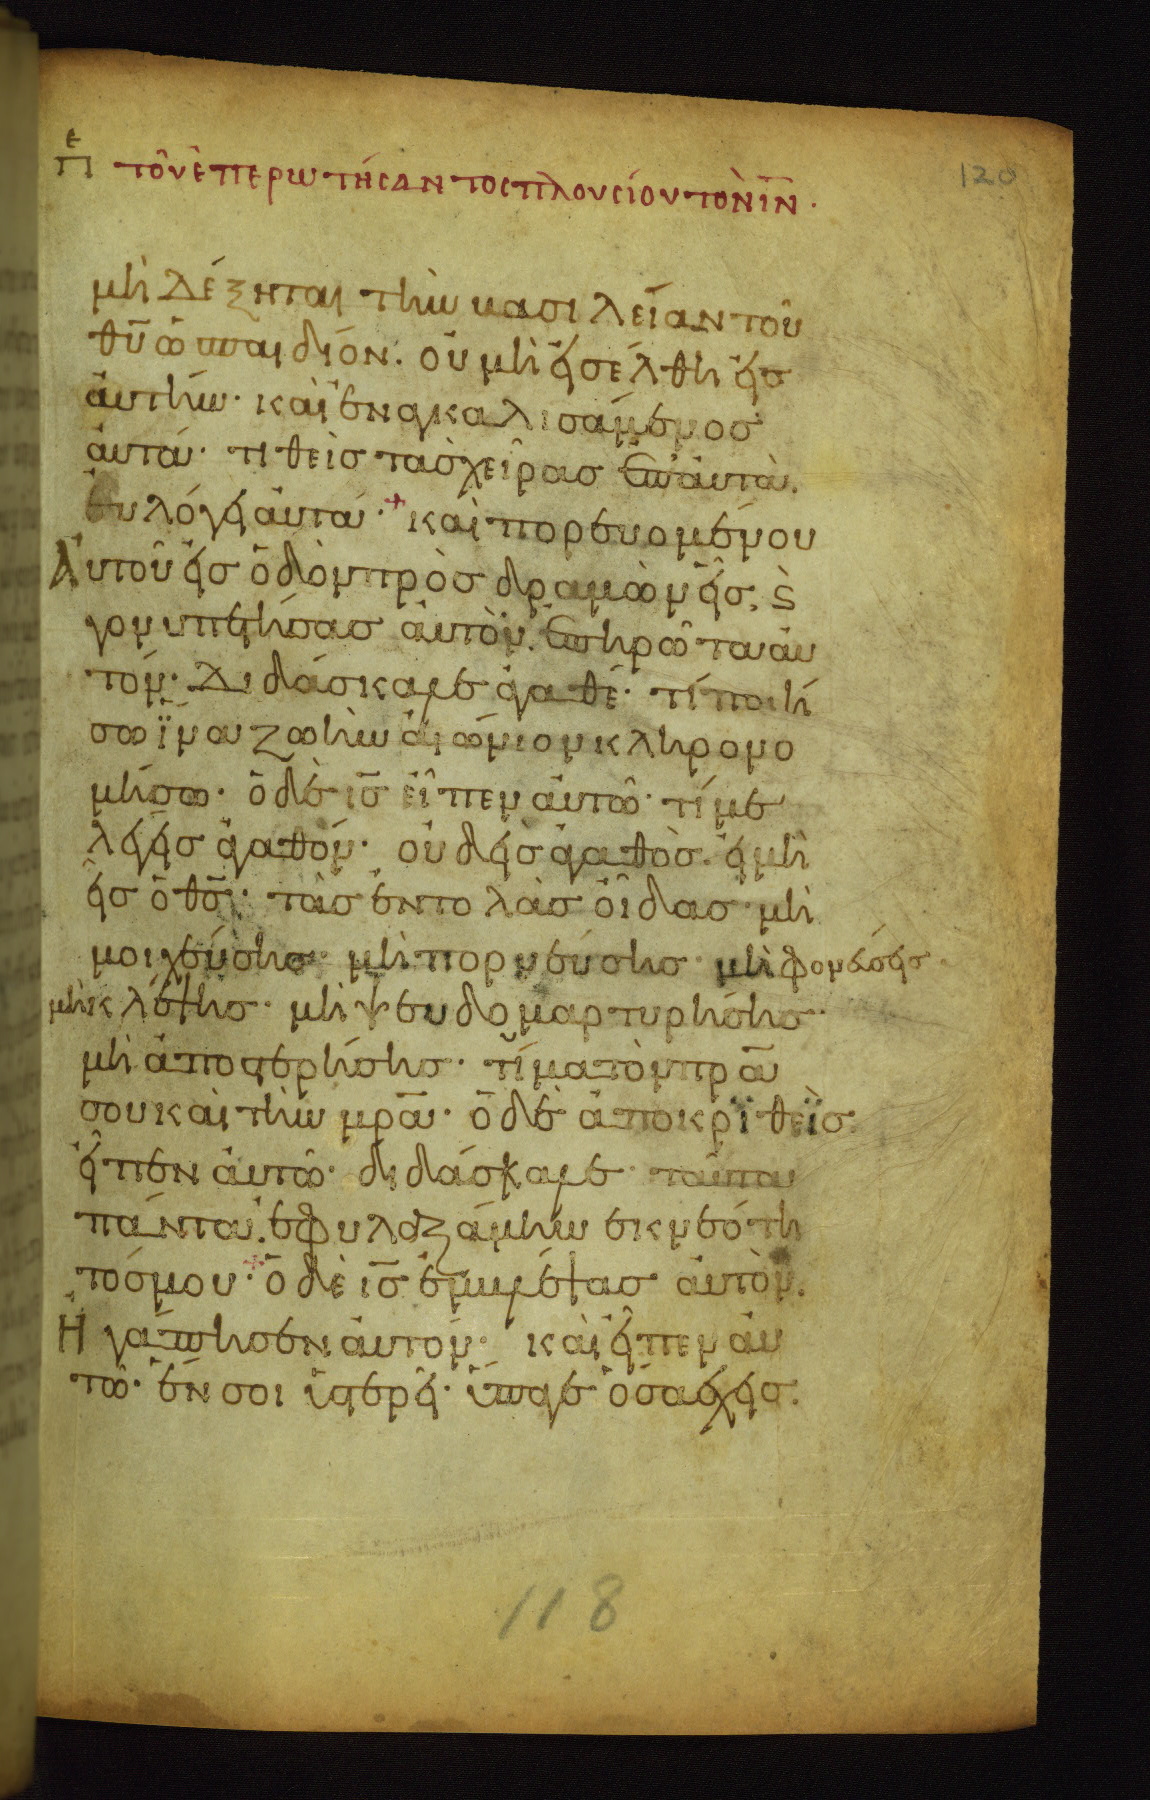 πε τοῦ ἐπερωτήσαντος πλουσίου τὸν ἰν̄ · 120
μὴ δέξηται τὴν βασιλείαν τοῦ
θῡ ὡς παιδίον. οὐ μὴ εἰσέλθη εἰς
αὐτήν· καὶ ἐναγκαλισάμενος
αὐτά· τιθεὶς τὰς χεῖρας ἐπ' αὐτὰ.
εὐλόγει αὐτά· + καὶ πορευομένου
Αὐτοῦ εἰς ὁδὸν προσδραμὼν εἷς, ϛ̀
γονυπετήσας αὐτὸν. ἐπηρώτα αὐ
τόν· Διδάσκαλε ἀγαθέ· τί ποιή
σω ἵνα ζωὴν αἰώνιον κληρονο
μήσω· ὁ δὲ ις̄ εἶπεν αὐτῶ· τί με
λέγεις ἀγαθόν· οὐδεὶς ἀγαθὸς. εἰ μὴ
εἷς ὁ θς̄· τὰς ἐντολὰς οἶδας· μὴ
μοιχεύσης· μὴ πορνεύσης· μὴ φονεύσεις·
μὴ κλέψης· μὴ ψευδομαρτυρήσης·
μὴ ἀποστερήσης· τίμα τὸν πρ̄α
σου καὶ τὴν μρ̄α· ὁ δὲ ἀποκρϊθεῒς
εἶπεν αὐτῶ· διδάσκαλε· ταῦτα
πάντα. ἐφυλαξάμην ἐκ νεότη
τός μου· + ὁ δὲ ις̄ ἐμβλέψας αὐτὸν.
Ἠγάπησεν αὐτόν· καὶ εἶπεν αὐ
τῶ· ἕν σοι ὑστερεῖ· ὕπαγε ὅσα ἔχεις.
118